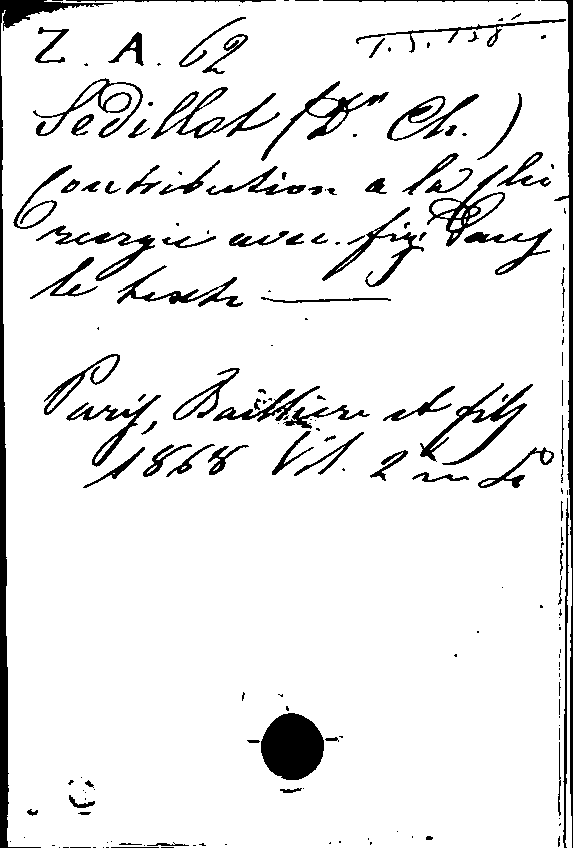 Z. A. 62
T. S. 158
Sédillot (Dr. Ch.)
Contribution a la Chi-
rurgie avec fig. Dans
le texte
Paris, Baillière et fils
1868 Vol. 2 in 8o